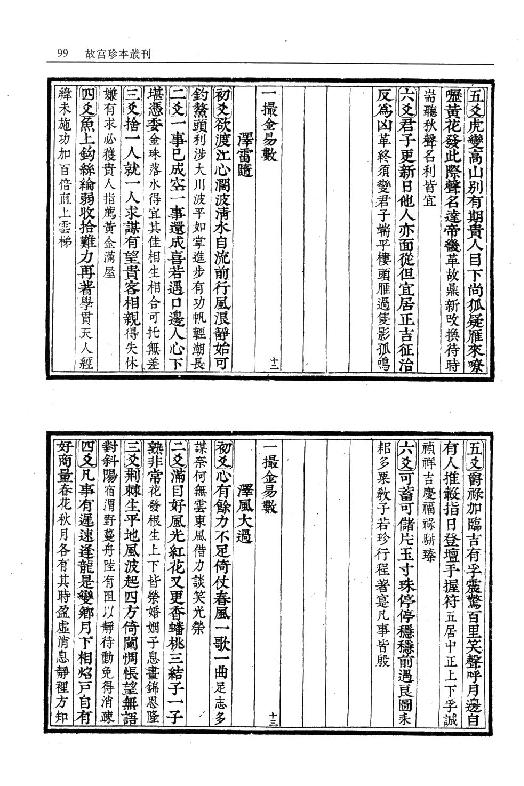 99 故宮珍本叢刊
五爻虎變高山別有期貴人目下尚狐疑雁來嘹
嚦黃花發此際聲名達帝畿革故鼎新改換待時
耑聽秋聲名利皆宜
六爻君子更新日他人亦面從但宜居正吉征治
反為凶革終須變君子豹平樓頭雁過隻影孤鳴
一撮金易數 十二
澤雷隨
初爻欲渡江心濶波清水自流前行風浪靜始可
釣鰲頭利涉大川波平如掌進步有功帆輕潮長
二爻一事已成空一事還成喜若遇口邊人心下
堪憑委金珠落水得宜其佳相生相合可托無差
三爻捨一人就一人求謀有望貴客相親得失休
嫌有求必獲貴人指薦黃金滿屋
四爻魚上鈎絲綸弱收拾難力再著學貫天人經
緯未施功加百倍直上雲梯
五爻爵祿加臨吉有孚震驚百里笑聲呼月邊自
有人推轂指日登壇手握符五居中正上下孚誠
禎祥吉慶福祿駢臻
六爻可蓄可儲片玉寸珠停停穩穩前過良圖未
耜多粟敎子若珍行程著寔凡事皆殷
一撮金易數 十三
澤風大過
初爻心有餘力不足倚仗春風一歌一曲足志多
謀奈何無雲東風借力談笑光榮
二爻滿目好風光紅花又更香蟠桃三結子一子
熟非常花發根生上下皆榮婚姻子息晝錦恩隆
三爻荆棘生平地風波起四方倚闌惆悵望無語
對斜陽宿渭野蔓舟陸有阻以靜待動免得消疎
四爻凡事有遲速逢龍是變鄉月下相焰戸自有
好商量春花秋月各有其時盈虛消息靜裡方知